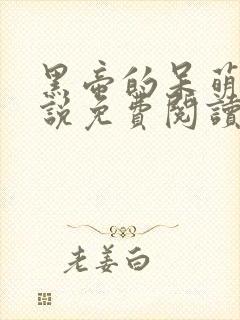 黑帝的呆萌
說免費閱讀
老姜白